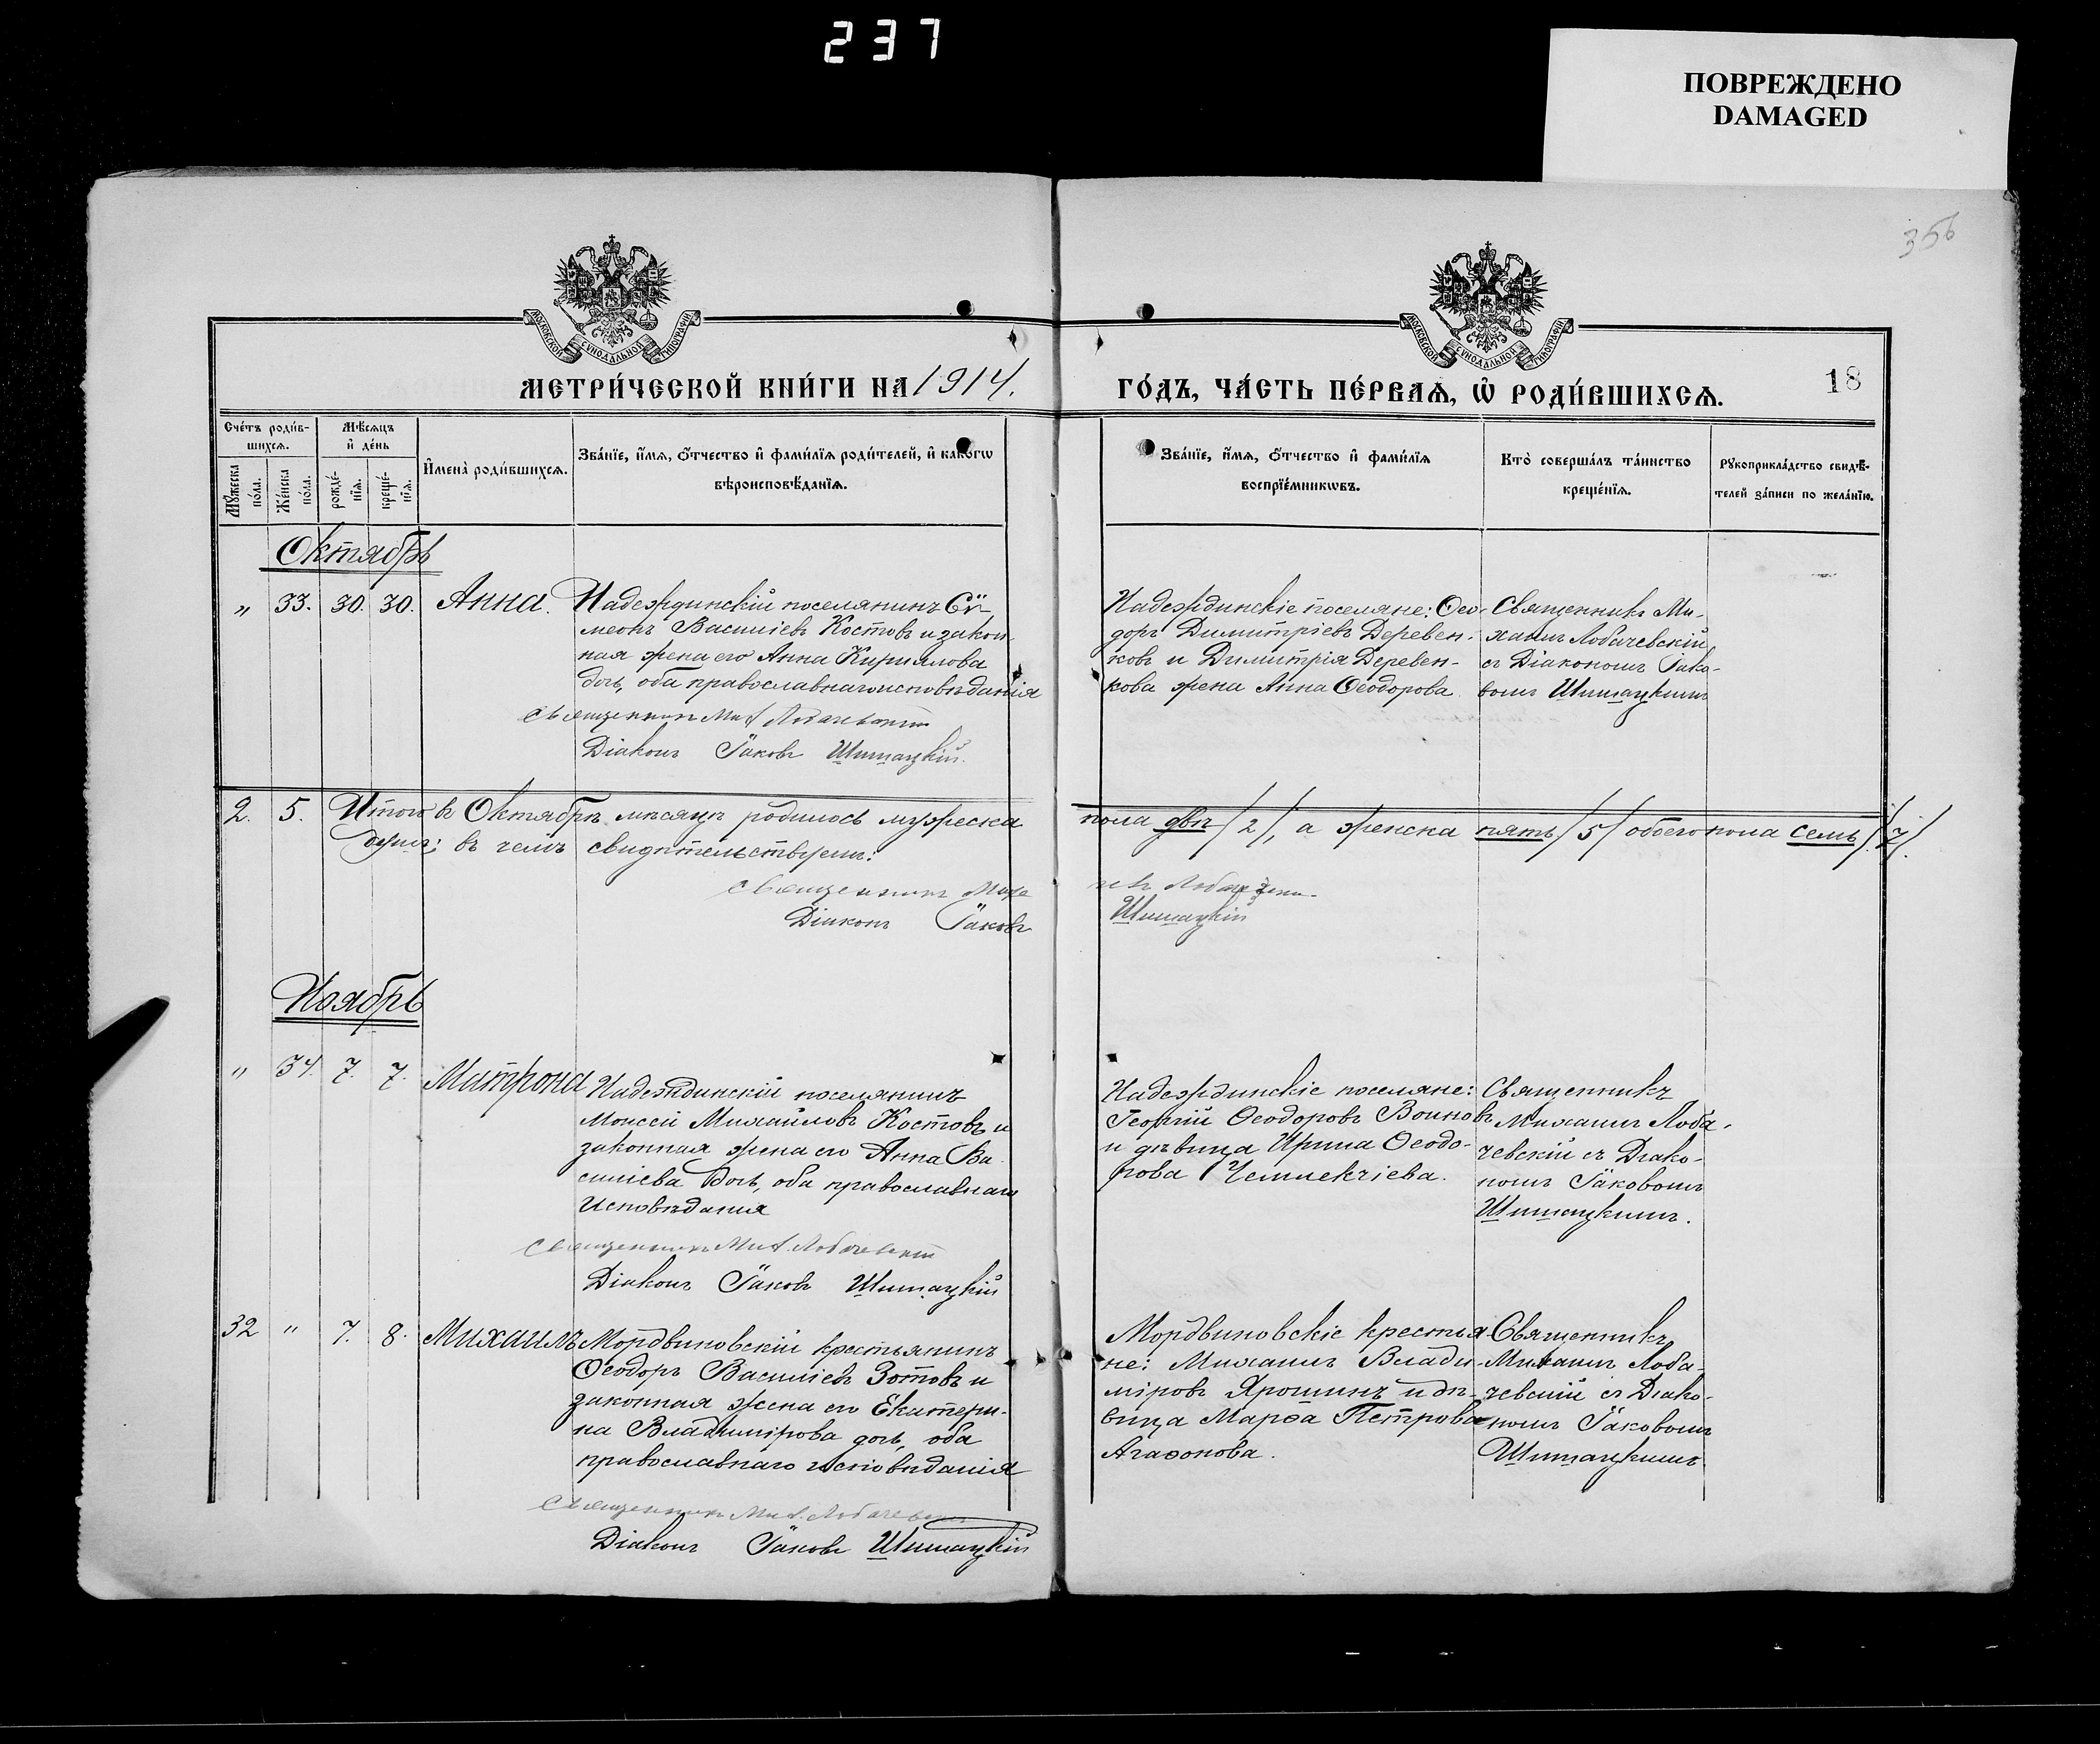 237
ПОВРЕЖДЕНО
DAMAGED
356
МОСКОВСКОЙ СѴНОДАЛЬНОЙ ТИПОГРАФІИ
МОСКОВСКОЙ СѴНОДАЛЬНОЙ ТИПОГРАФІИ
МЕТРИ́ЧЕСКОЙ КНИ́ГИ НА 1914.
ГО́ДЪ, ЧА́СТЬ ПЕ́РВАѦ, Ѽ РОДИ́ВШИХСѦ.
18
Сче́тъ роди́в-
шихсѧ.
Мѣ́сѧцъ
и҆ де́нь
Мꙋ́жеска
по́ла.
Же́нска
по́ла.
рожде́-
нїѧ.
креще́-
нїѧ.
И҆мена̀ роди́вшихсѧ.
Зва́нїе, и҆́мѧ, ѻ҆́тчество и҆ фами́лїѧ роди́телей, и҆ како́гѡ
вѣроисповѣ́данїѧ.
Зва́нїе, и҆́мѧ, ѻ҆́тчество и҆ фами́лїѧ
воспрїе́мникѡвъ.
Кто̀ соверша́лъ та́инство
креще́нїѧ.
Рꙋкоприкла́дство свидѣ́-
телей за́писи по жела́нїю.
Октябрь
" 33. 30. 30. Анна.
Надеждинскій поселянинъ Сѵ-
меонъ Василіевъ Костовъ и закон-
ная жена его Анна Кириллова
дочь, оба православнаго исповѣданія
Священникъ Мих. Лобачевскій
Діаконъ Іаковъ Шишацкій.
Надеждинскіе поселяне: Ѳео-
доръ Димитріевъ Деревен-
ковъ и Димитрія Деревен-
кова жена Анна Ѳеодорова.
Священникъ Ми-
хаилъ Лобачевскій
съ Діакономъ Іако-
вомъ Шишацкимъ
2. 5. Итого въ Октябрѣ мѣсяцѣ родилось мужеска пола двѣ /2/, а женска пять /5/ обоего пола семь /7/
душъ; въ чемъ свидѣтельствуемъ:
Священникъ Миха илъ Лобачевскій
Діаконъ Іаковъ Шишацкій
Ноябрь
" 34. 7. 7. Матрона
Надеждинскій поселянинъ
Моисей Михайловъ Костовъ и
законная жена его Анна Ва-
силіева дочь, оба православнаго
исповѣданія
Священникъ Мих. Лобачевскій
Діаконъ Іаковъ Шишацкій
Надеждинскіе поселяне:
Георгій Ѳеодоровъ Воиновъ
и дѣвица Ирина Ѳеодо-
рова Чемлекчіева.
Священникъ
Михаилъ Лоба-
чевскій съ Діако-
номъ Іаковомъ
Шишацкимъ.
32 " 7. 8. Михаилъ
Мордвиновскій крестьянинъ
Ѳеодоръ Василіевъ Зотовъ и
законная жена его Екатери-
на Владимірова дочь, оба
православнаго исповѣданія
Священникъ Мих. Лобачевскій
Діаконъ Іаковъ Шишацкій
Мордвиновскіе крестья-
не: Михаилъ Влади-
міровъ Ярошинъ и дѣ-
вица Марѳа Петрова
Агаѳонова.
Священникъ
Михаилъ Лоба-
чевскій съ Діако-
номъ Іаковомъ
Шишацкимъ